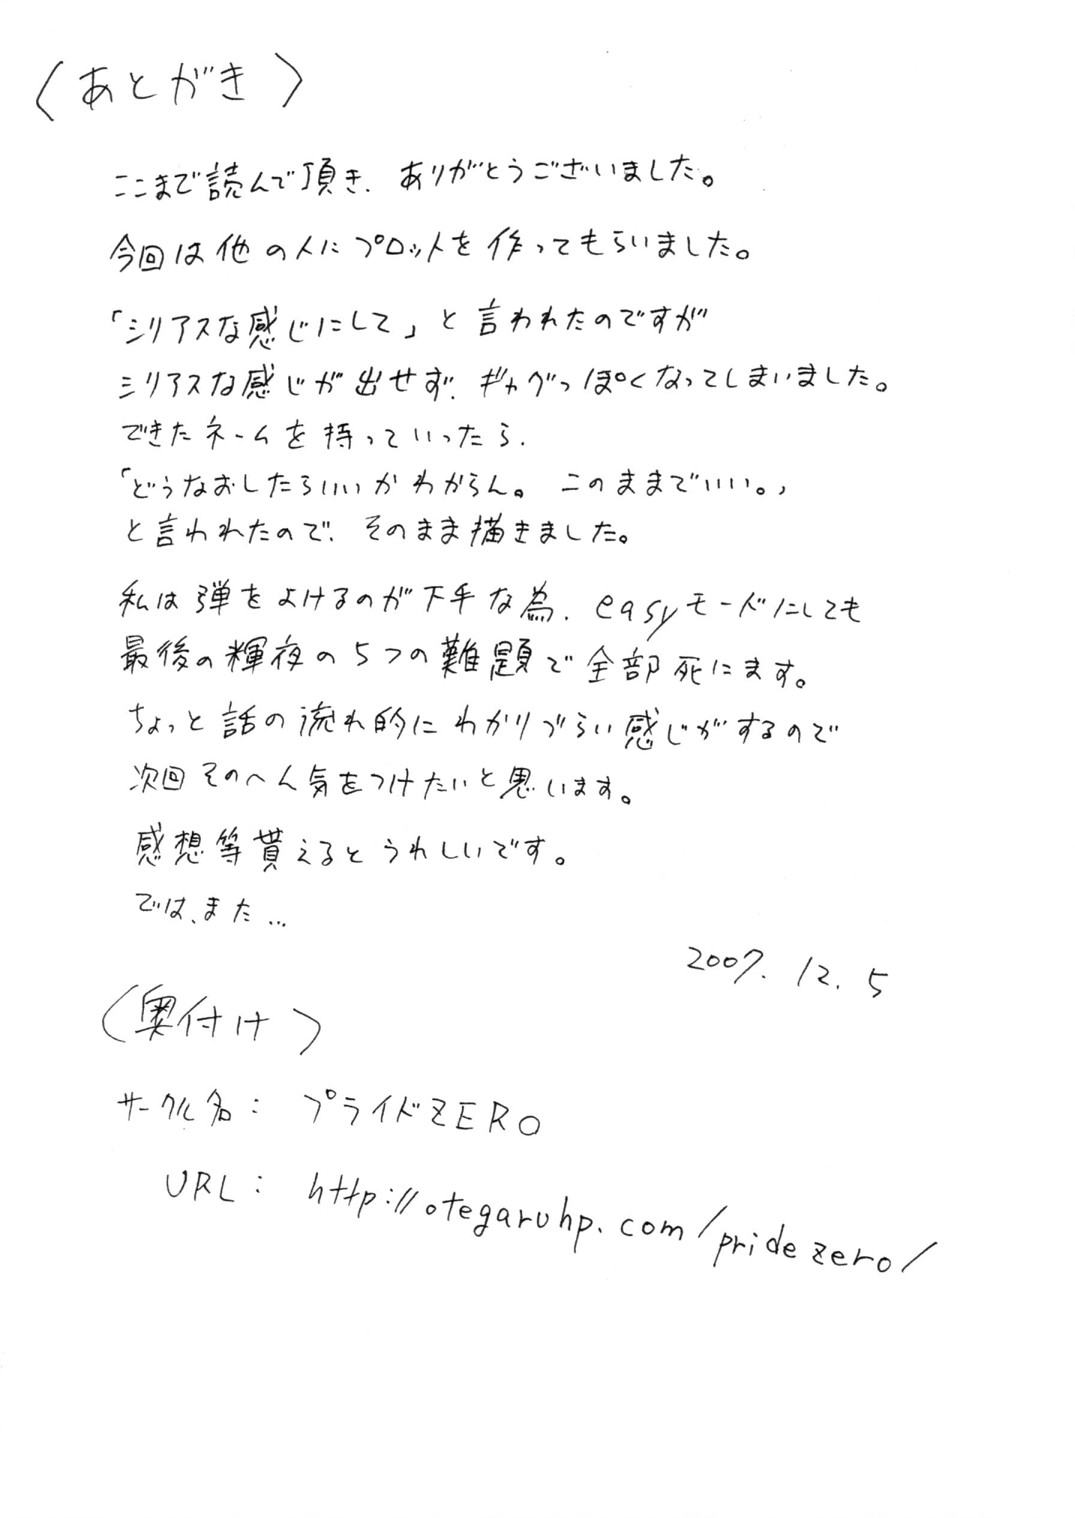 〈あとがき〉
ここまで読んで頂き、ありがとうございました。
今回は他の人にプロットを作ってもらいました。
「シリアスな感じにして」と言われたのですが
シリアスな感じが出せず、ギャグっぽくなってしまいました。
できたネームを持っていったら、
「どうなおしたらいいかわからん。このままでいい。」
と言われたので、そのまま描きました。
私は弾をよけるのが下手な為、easyモードにしても
最後の輝夜の5つの難題で全部死にます。
ちょっと話の流れ的にわかりづらい感じがするので
次回そのへん気をつけたいと思います。
感想等貰えるとうれしいです。
では、また…
2007.12.5
〈奥付け〉
サークル名：プライドZERO
URL：http://otegaruhp.com/pridezero/